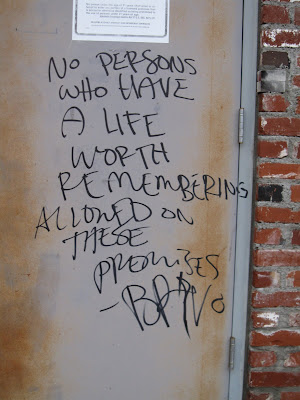 NO PERSONS
WHO HAVE
A LIFE
WORTH
REMEMBERING
ALLOWED ON
THESE
PREMISES
- BRAVO